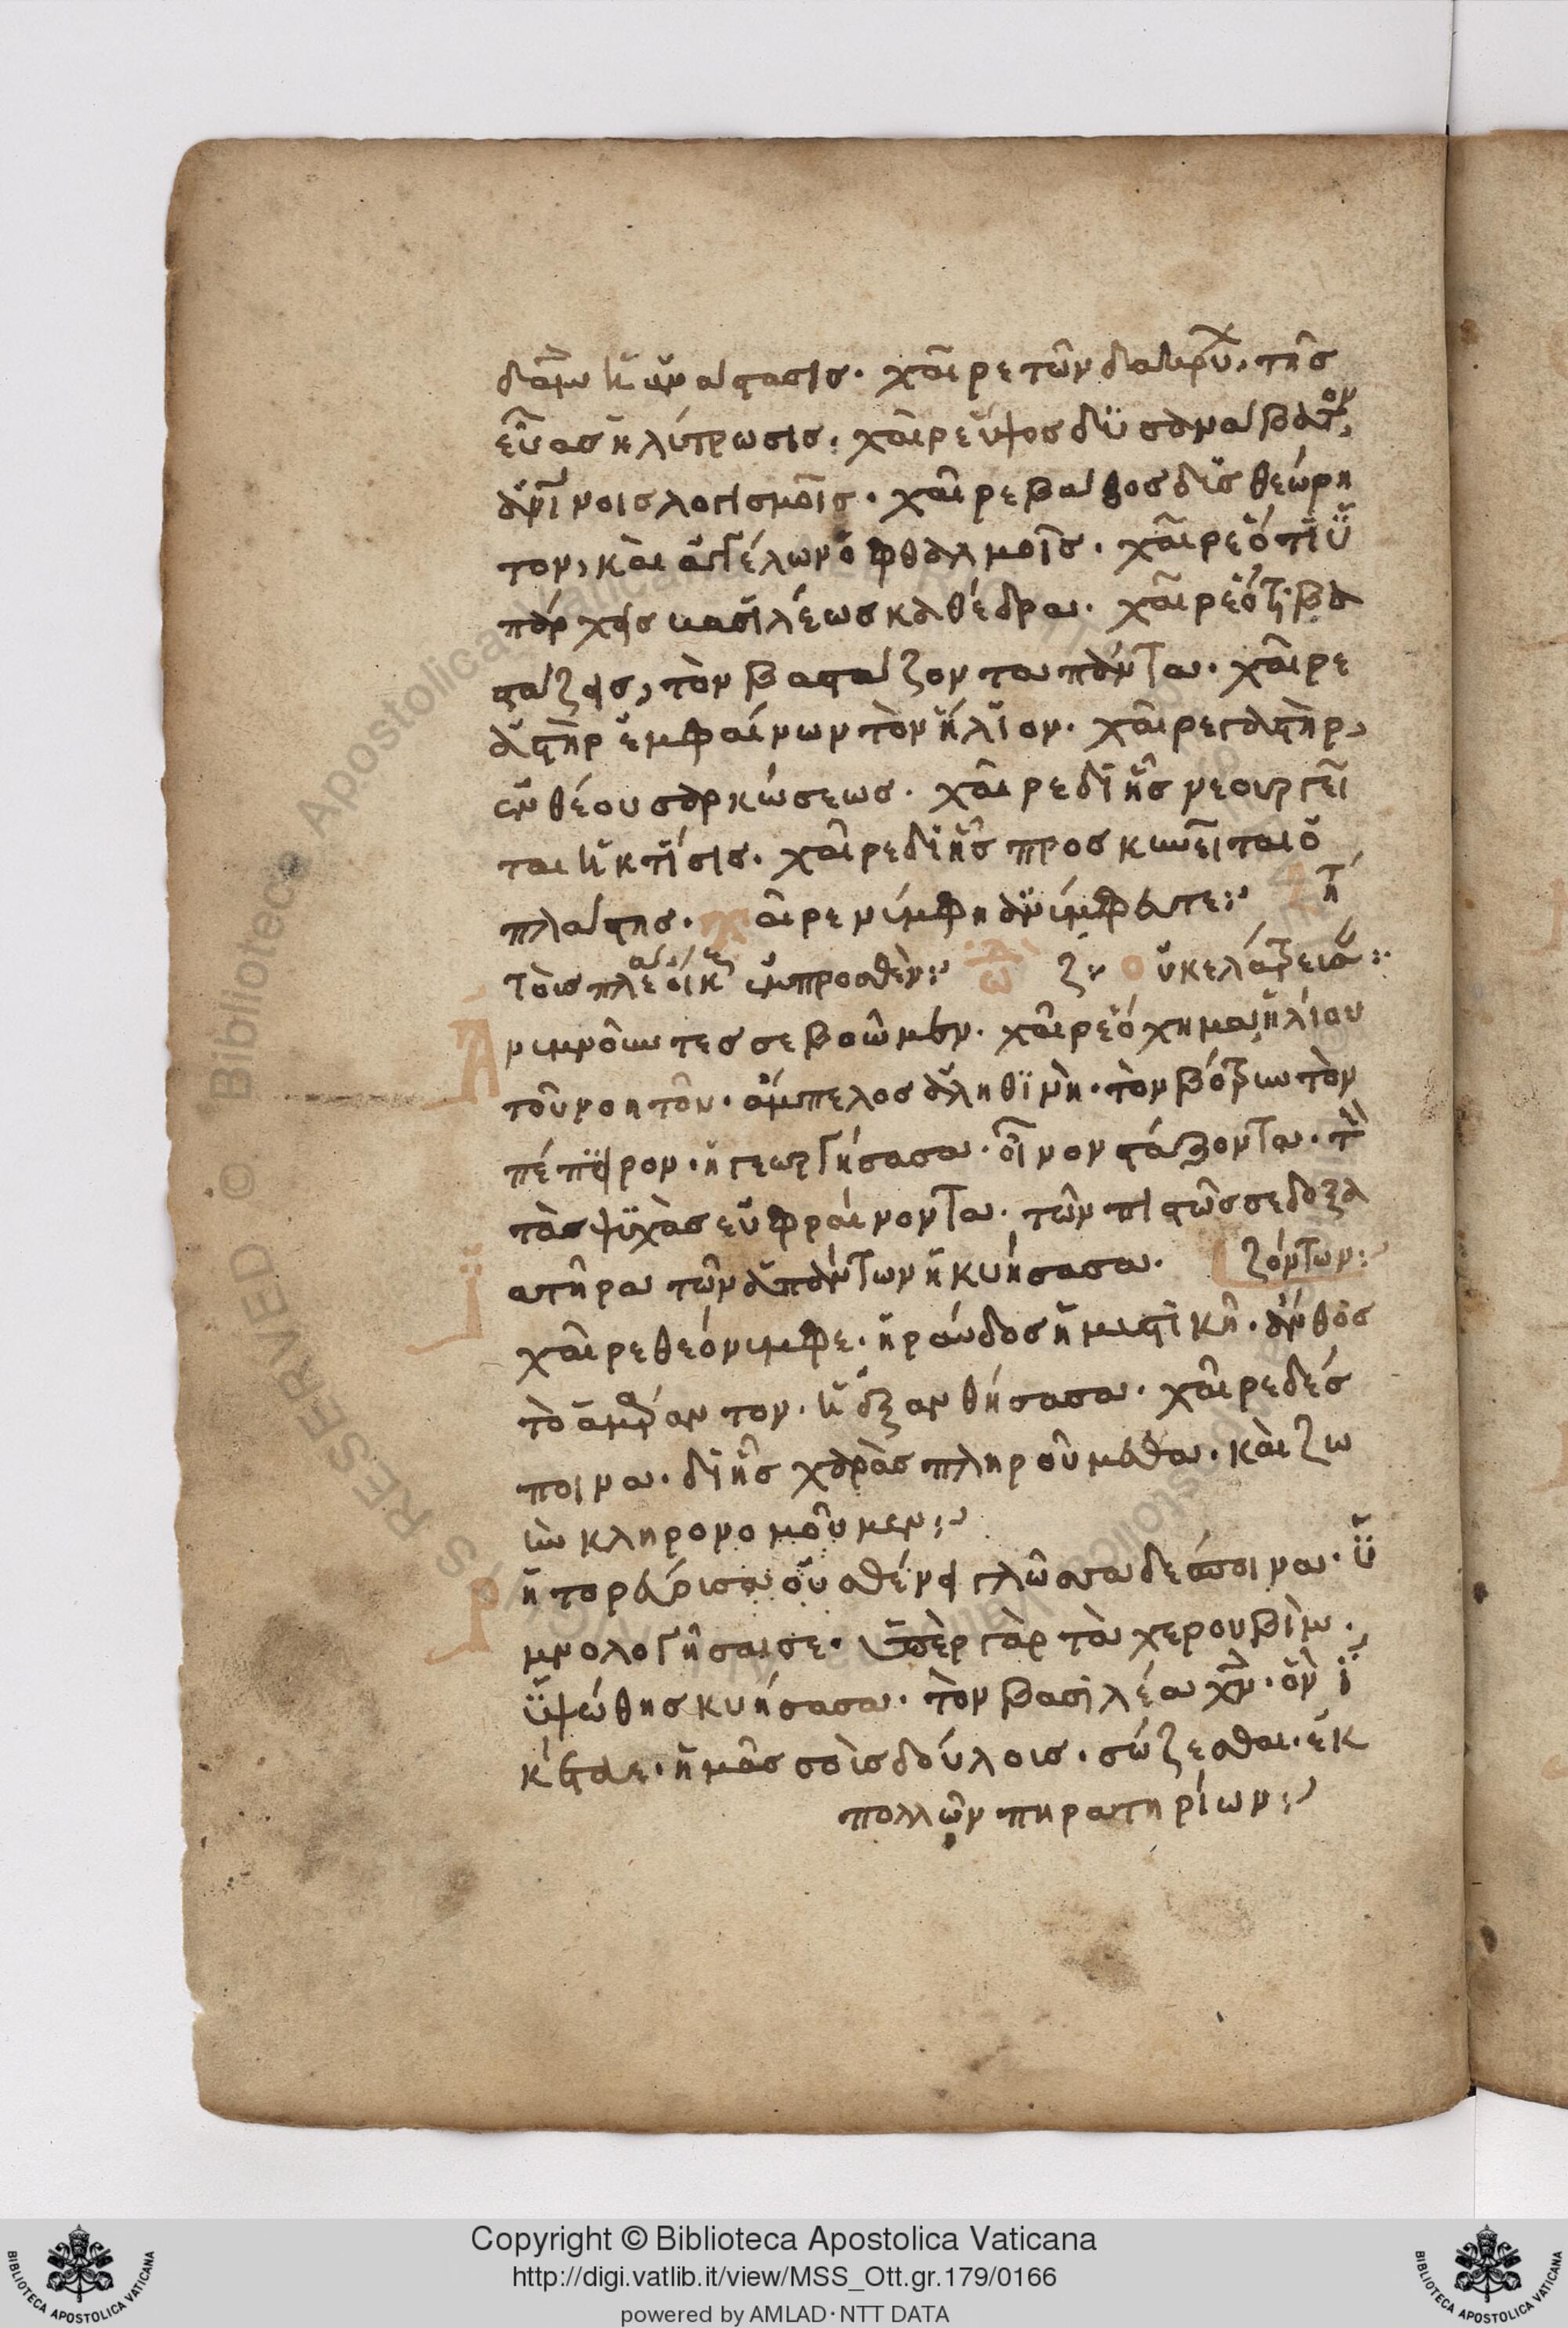 δὰμ ἡ ἀνάστασις. χαῖρε τῶν δακρύ, τῆς
εὔας ἡ λύτρωσις. χαῖρε ὕψος δϋσανάβατον,
ἀνΐνοις λογισμοῖς. χαῖρε βάθος δϋς θεώρη
τον, καὶ ἀγγέλων ὀφθαλμοῖς. χαῖρε ὅτι ὑ
πάρχεις βασιλέως καθέδρα. χαῖρε ὅτι βα
στάζεις, τὸν βαστάζοντα πάντα. χαῖρε
ἀστὴρ ἐμφαίνων τὸν ἥλιον. χαῖρε γαστὴρ,
ἐνθέου σαρκώσεως. χαῖρε δι ἧς νεουργεῖ
ται ἡ κτίσις. χαῖρε δι ἧς προσκυνεῖται ὁ
πλάστης. χαῖρε νύμφη ἀνύμφευτε:
ἔμπροσθεν: ζ: οὐκ ἐλάτρευσα:
Ἀνυμνοῦντες σε βοῶμεν. χαῖρε ὄχημα ἡλίου
τοῦ νοητοῦ. ἄμπελος ἀληθινὴ. τὸν βότρυν τὸν
πέπειρον. ἡ γεωργήσασα. οἶνον στάζοντα.
τὰς ψϋχὰς εὐφραίνοντα. τῶν πιστῶς σε δοξα
Ἰατῆρα τῶν ἁπάντων ἡ κυήσασα. ζόντων:
χαῖρε θεόνυμφε. ἡ ράβδος ἡ μυστικὴ. ἄνθος
τὸ ἀμάραντον. ἡ ἐξανθήσασα. χαῖρε δέσ
ποινα. δι ἧς χαρᾶς πληρούμεθα. καὶ ζω
ὴν κληρονομοῦμεν:
Ρητορεύουσα οὐ σθένει γλῶσσα δέσποινα. ὑ
μνολογῆσαι σε. ὑπὲρ γὰρ τὰ χερουβὶμ.
ὑψώθης κυήσασα. τὸν βασιλέα χν. ὃν ἱ
κέτευε. ἡμᾶς σοῖς δούλοις. σώζεσθαι. ἐκ
πολλῶν πηρατηρίων:
Copyright © Biblioteca Apostolica Vaticana
http://digi.vatlib.it/view/MSS_Ott.gr.179/0166
powered by AMLAD·NTT DATA